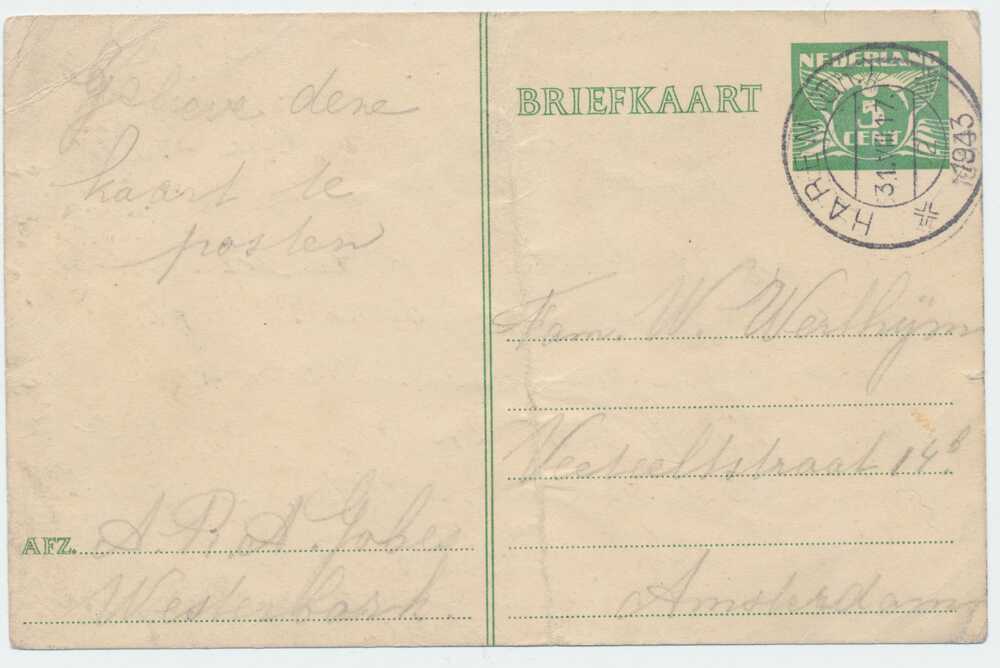 Gelieve deze
kaart te
posten
AFZ. A. R. A. Gobes
Westerbork.
BRIEFKAART
NEDERLAND
5
CENT
HAREN
31.VII 17
1943
Fam. W. Werthijm
14b
Amsterdam